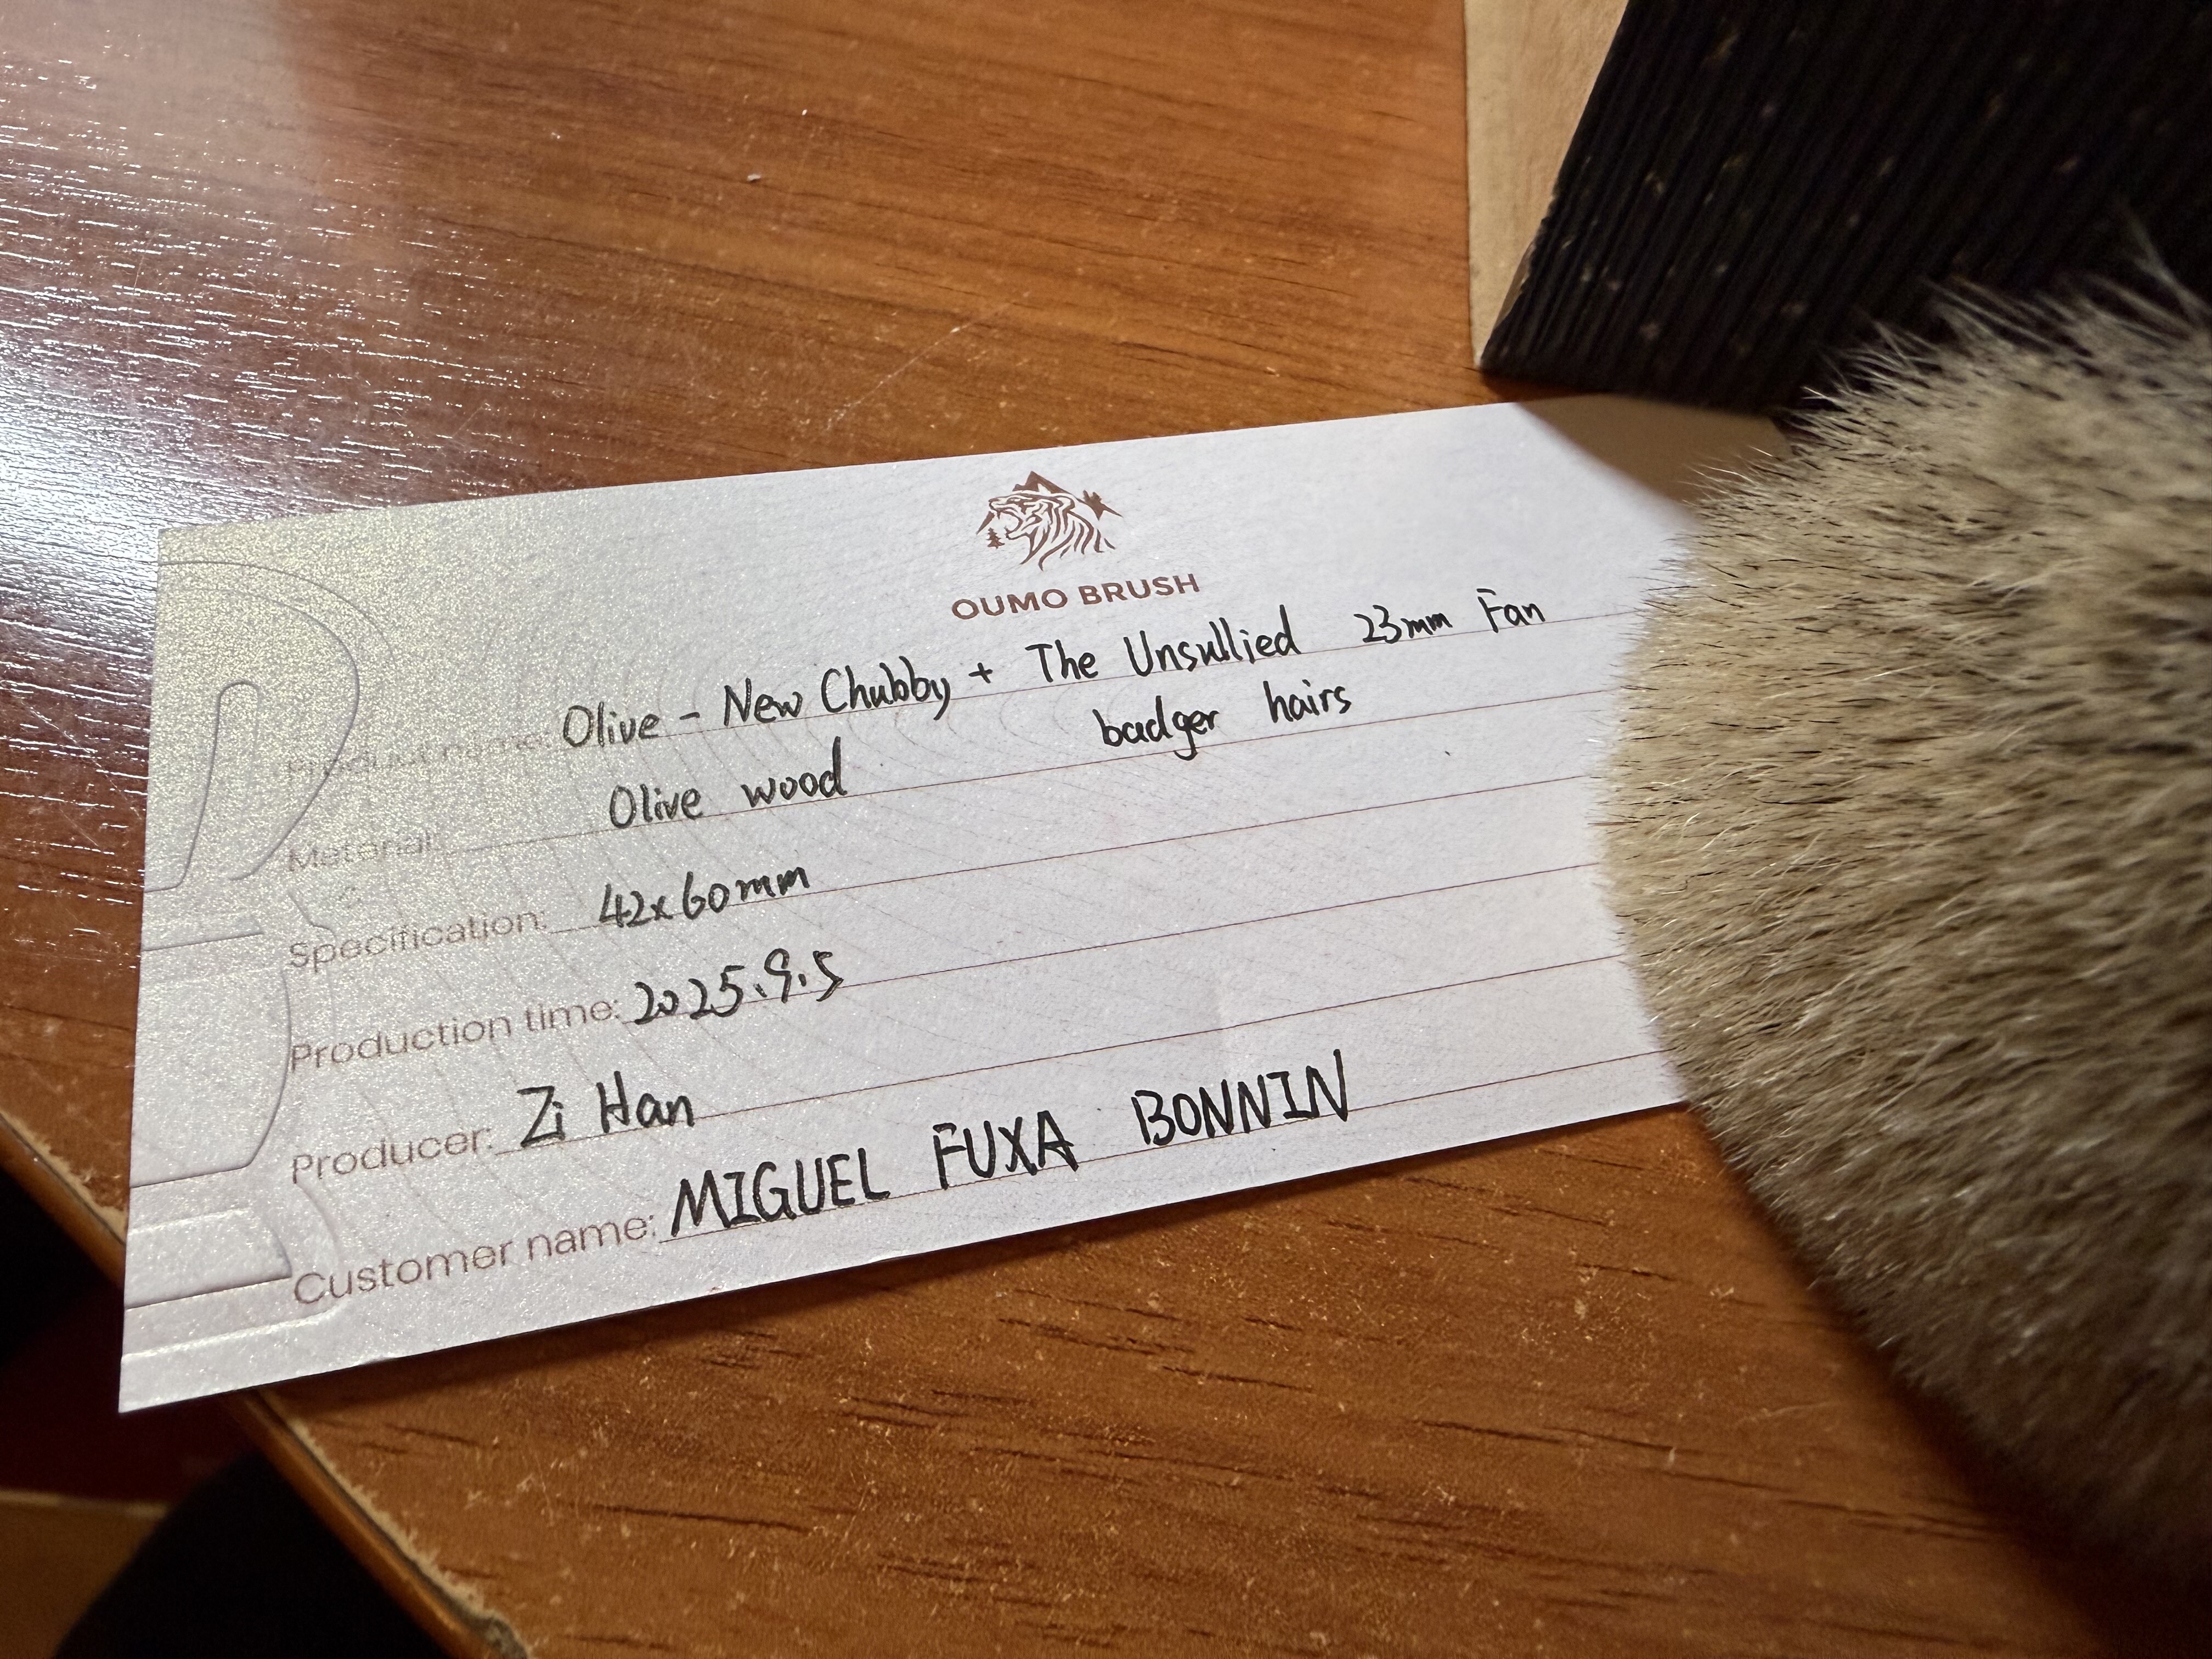 OUMO BRUSH
Product name: Olive - New Chubby + The Unsullied 23mm Fan
badger hairs
Material: Olive wood
Specification: 42x60mm
Production time: 2025.9.5
Producer: Zi Han
Customer name: MIGUEL FUXA BONNIN